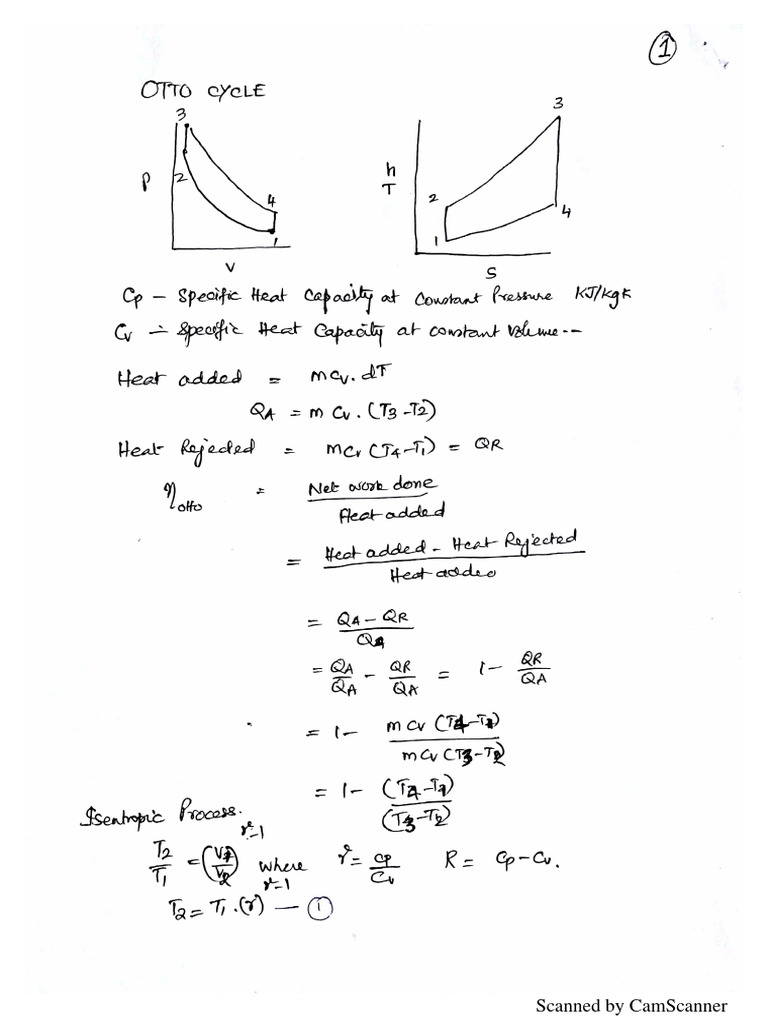 1
OTTO CYCLE
3
2
4
1
P
V
3
2
4
1
h
T
S
Cp – Specific Heat Capacity at Constant Pressure KJ/kgK
Cv – Specific Heat Capacity at constant Volume --
Heat added = mcv. dT
QA = m Cv. (T3 -T2)
Heat Rejected = mCv (T4-T1) = QR
ηotto = Net work done / Heat added
= Heat added - Heat Rejected / Heat added
= QA - QR / QA
= QA/QA - QR/QA = 1 - QR/QA
= 1 - mcv (T4-T1) / mcv (T3-T2)
= 1 - (T4-T1) / (T3-T2)
Isentropic Process.
T2/T1 = (V1/V2)^γ-1 where γ = Cp/Cv R = Cp-Cv.
T2 = T1.(r)^γ-1 — 1
Scanned by CamScanner